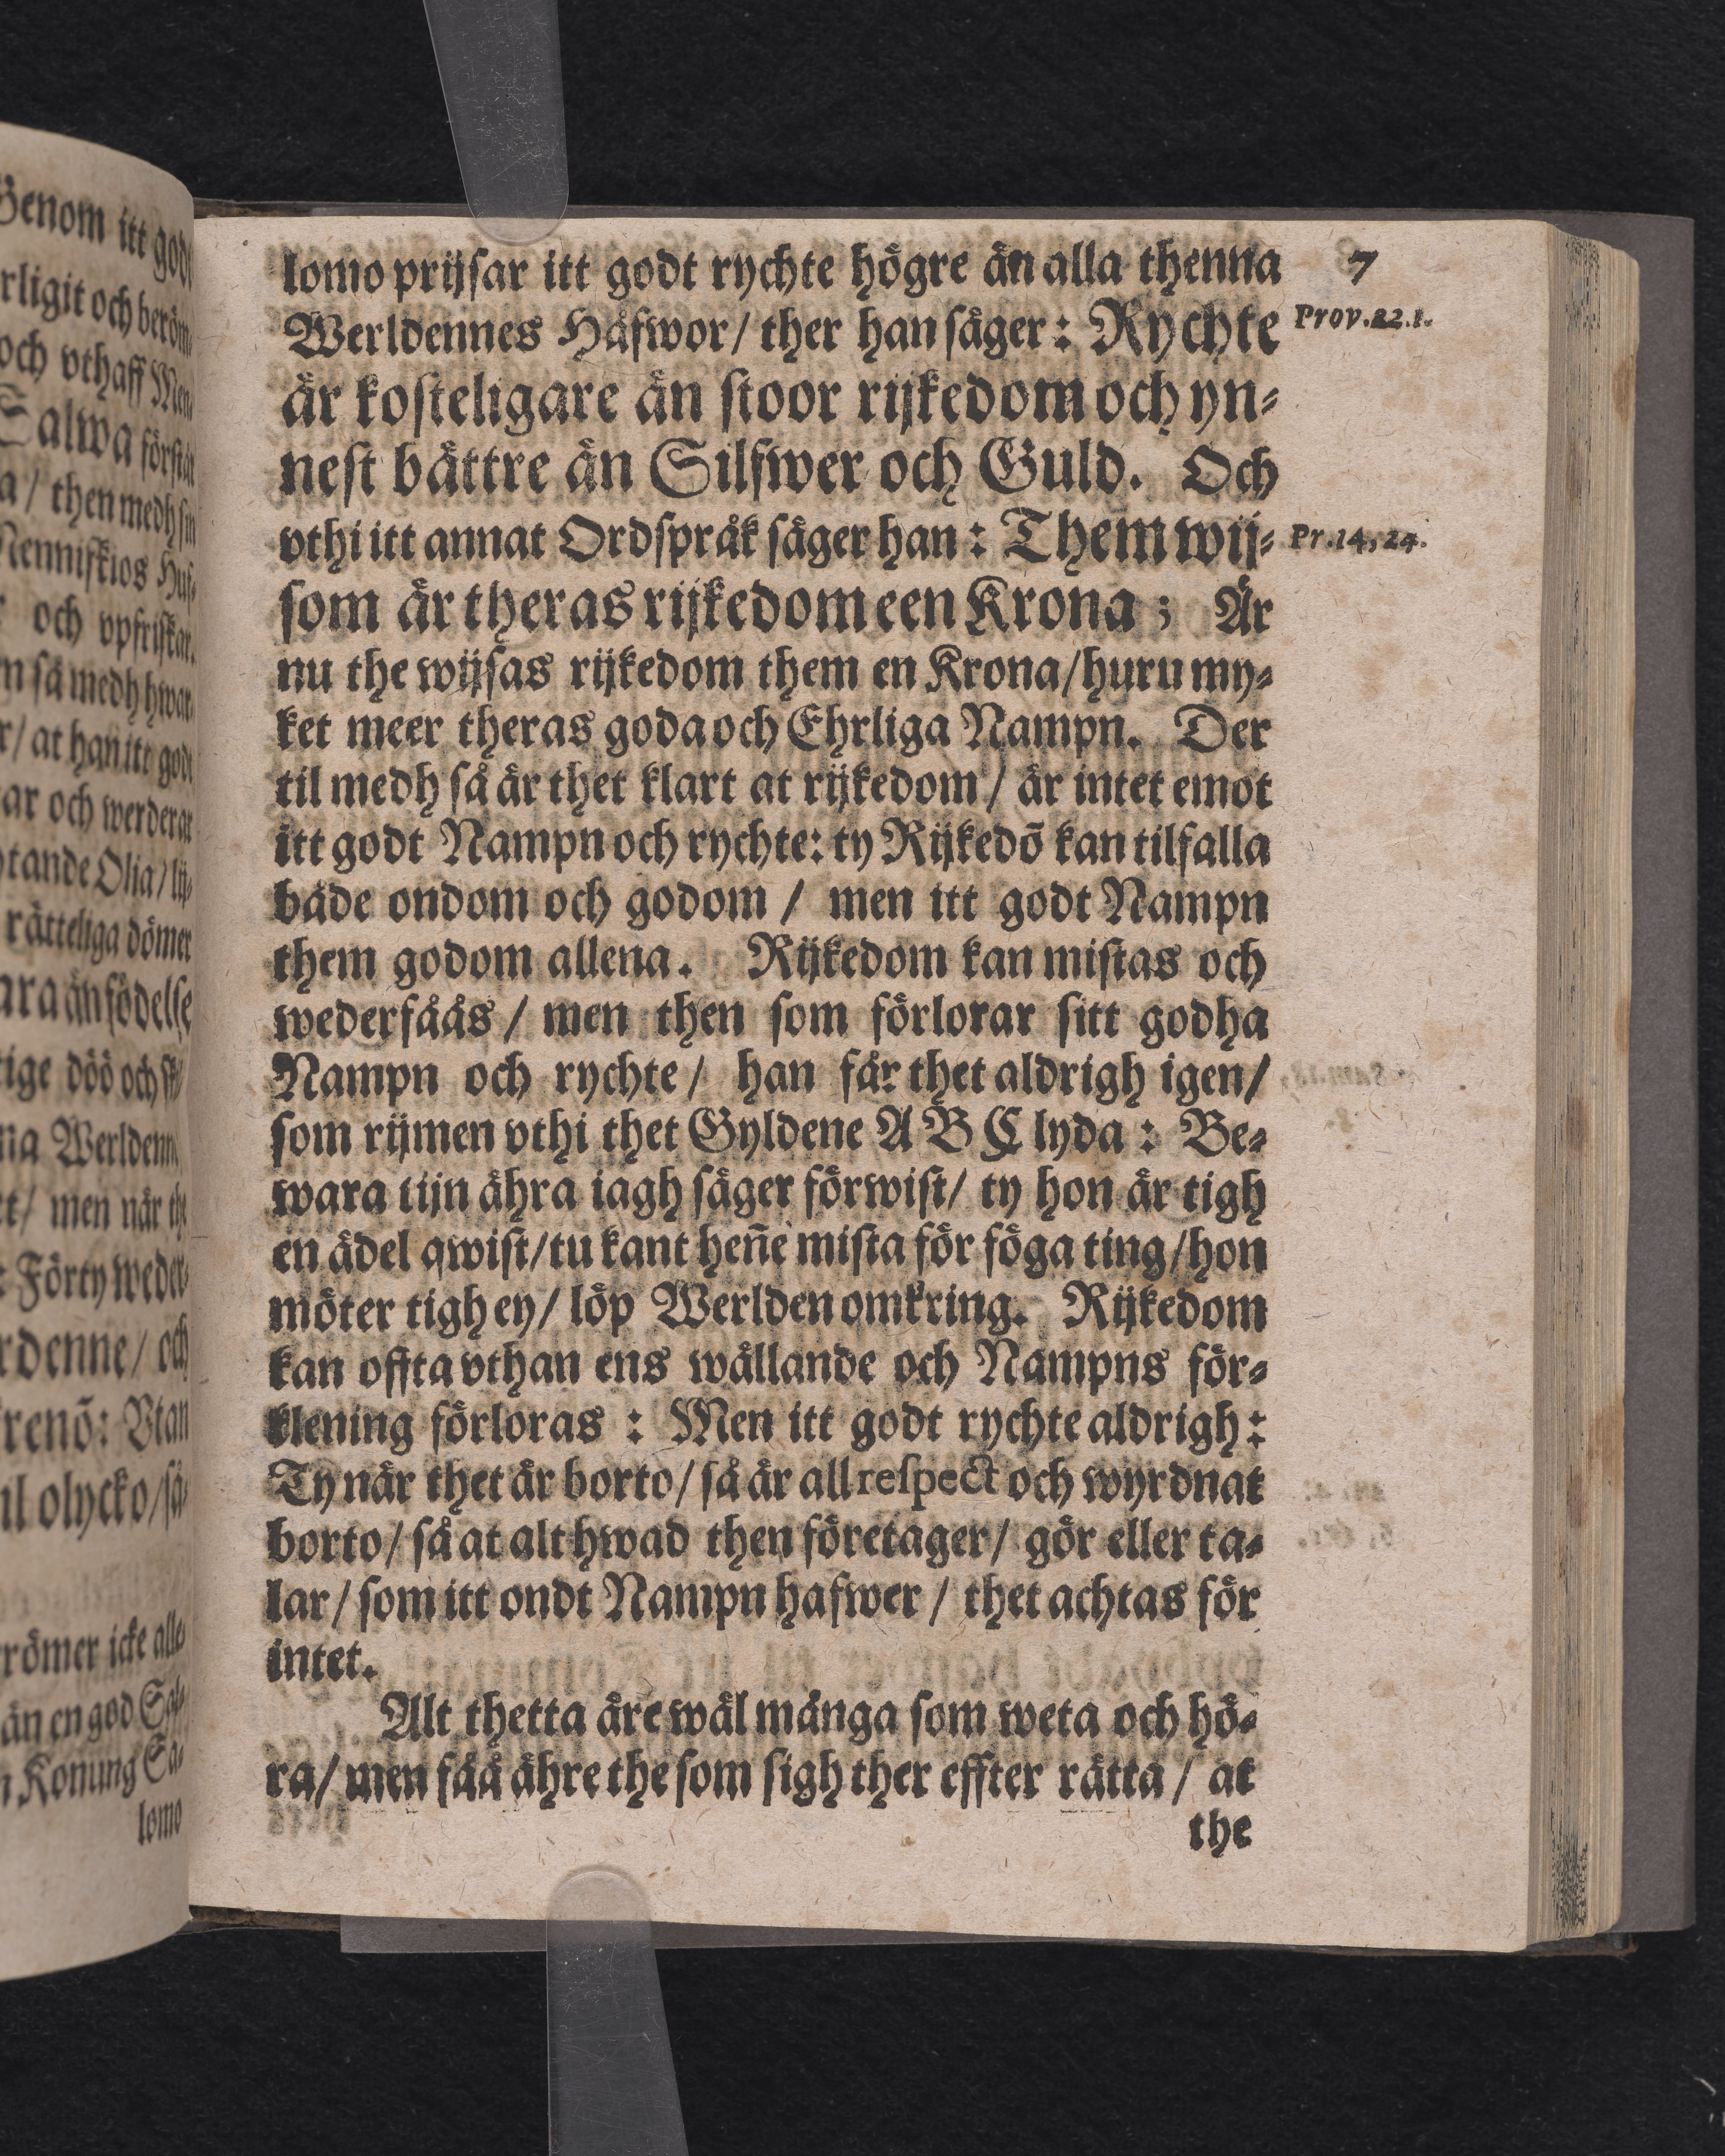 lomo prijsar itt godt rychte högre än alla thenna
7
Werldennes Håfwor/ ther han säger: Rychte
Prov. 22. 1.
är kosteligare än stoor rijkedom och yn-
nest bättre än Silfwer och Guld. Och
vthi itt annat Ordspråk säger han: Them wij-
Pr. 14, 24.
som är theras rijkedom een Krona; Är
nu the wijsas rijkedom them en Krona/ huru my-
ket meer theras goda och Ehrliga Nampn. Der
til medh så är thet klart at rijkedom/ är intet emot
itt godt Nampn och rychte: ty Rijkedõ kan tilfalla
både ondom och godom/ men itt godt Nampn
them godom allena. Rijkedom kan mistas och
wederfåås/ men then som förlorar sitt godha
Nampn och rychte/ han får thet aldrigh igen/
som rijmen vthi thet Gyldene A B C lyda: Be-
wara tijn ähra iagh säger förwist/ ty hon är tigh
en ädel qwist/ tu kant heñe mista för föga ting/ hon
möter tigh ey/ löp Werlden omkring. Rijkedom
kan offta vthan ens wållande och Nampns för-
klening förloras: Men itt godt rychte aldrigh:
Ty när thet är borto/ så är all respect och wyrdnat
borto/ så at alt hwad then företager/ gör eller ta-
lar/ som itt ondt Nampn hafwer/ thet achtas för
intet.
Alt thetta äre wäl många som weta och hö-
ra/ men fåå ähre the som sigh ther effter rätta/ at
the